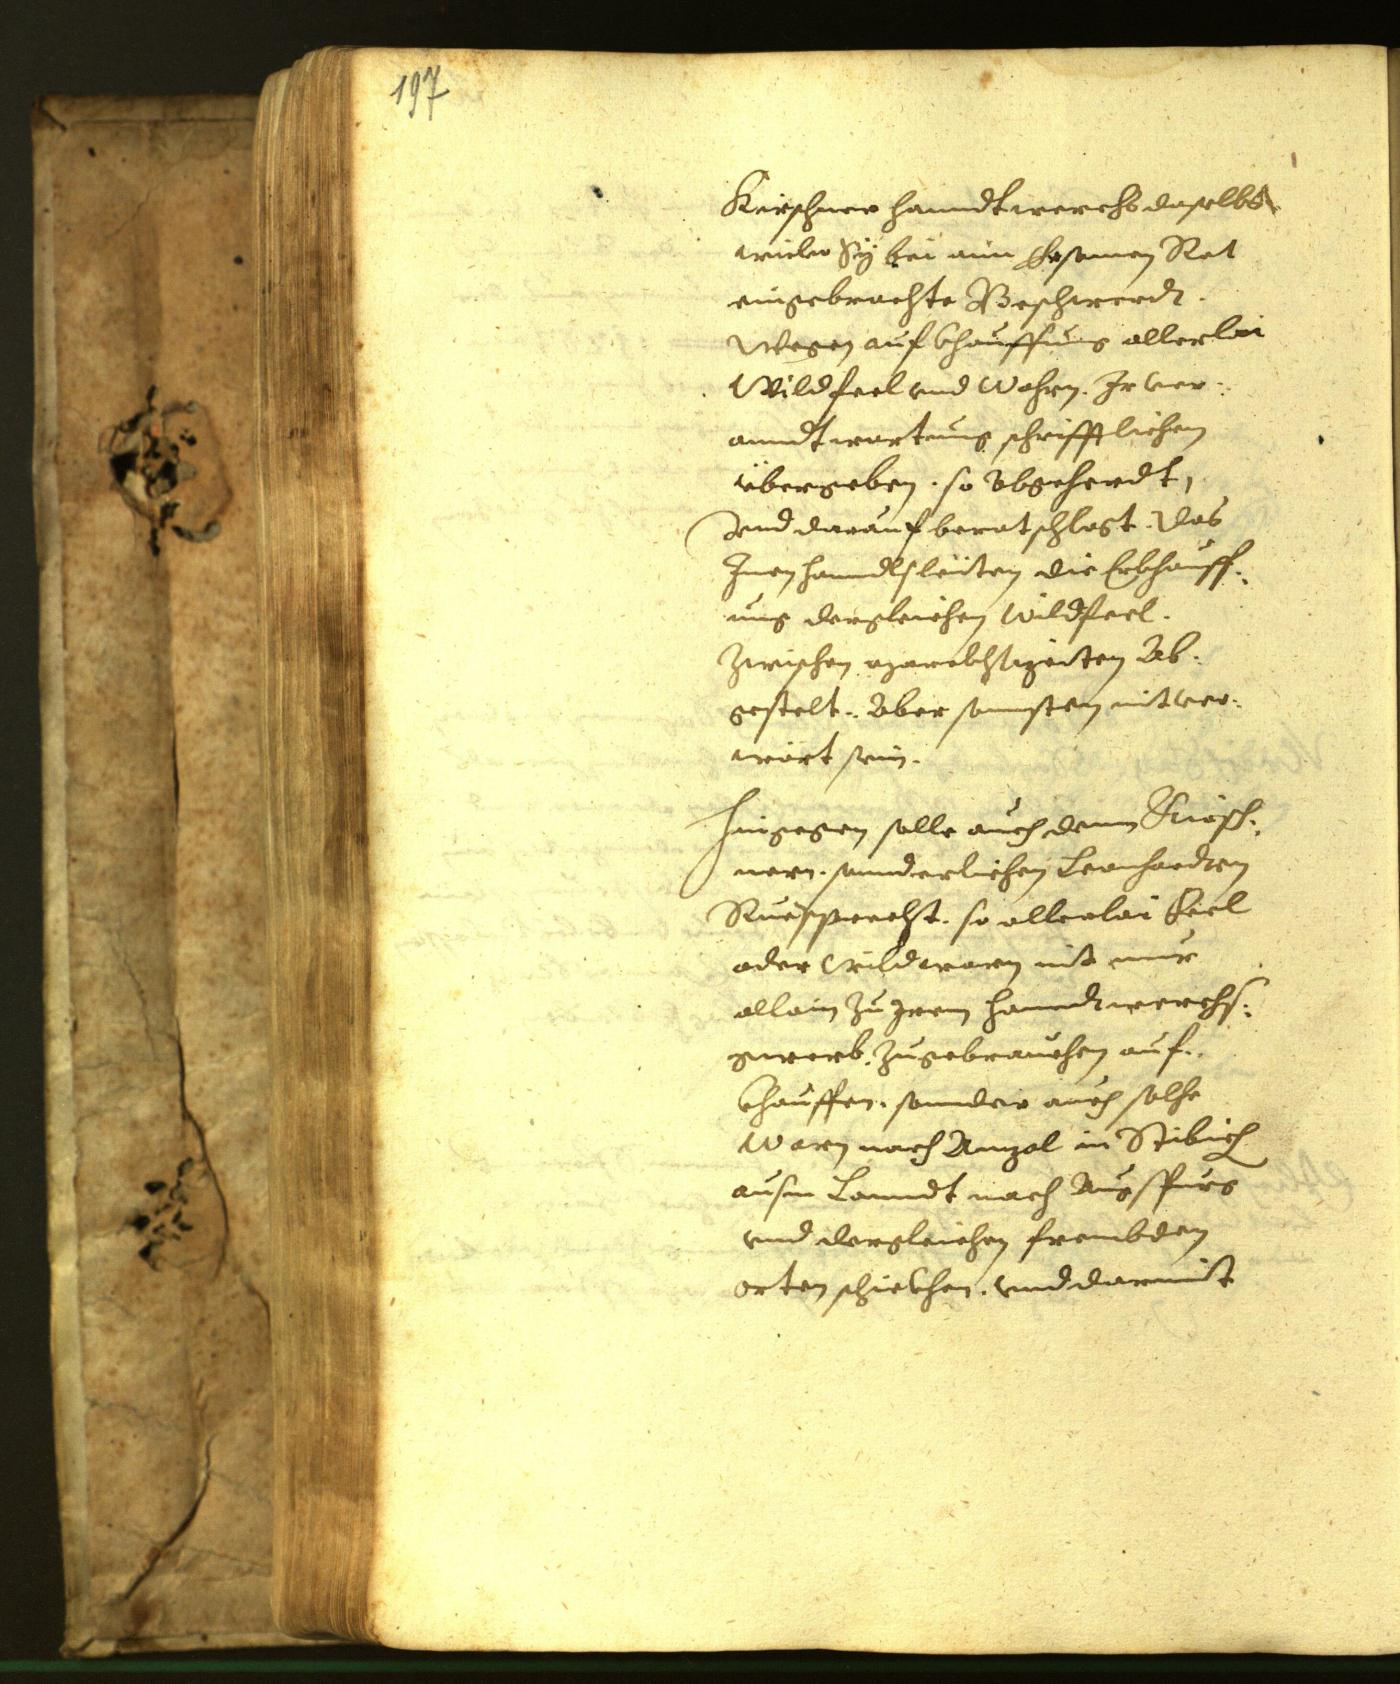 197
Kürschner Hanndtwerchs daselbs,
wider Sÿ bei aim Ersamen Rat
eingebrachte Beschwerdt.
Wegen aufkhauffung allerlai
Wildfeel vnd Wahrn. Ir ver:
anndtwortung schrifftlichen
übergeben. so abgehördt,
Vnd darauf beratschlagt. Das
Inen Hanndlsleüten die Erkhauff:
ung dergleichen Wildfeel.
Zwischen Ab:
gestelt. Aber sonnsten nit ver:
wört sein.
Hingegen solle auch denn Kürsch:
nern. sonnderlichen Leonhardten
so allerlai Feel
oder Wildwarn nit nur
allain zu Irem Hanndtwerchs:
gwerb. zugebrauchen auf:
khauffen. sonnder auch solche
Warn nach Anzal in Stibich
ausm Lanndt nach Augspurg
vnd dergleichen frembden
orten schickhen. vnd darmit